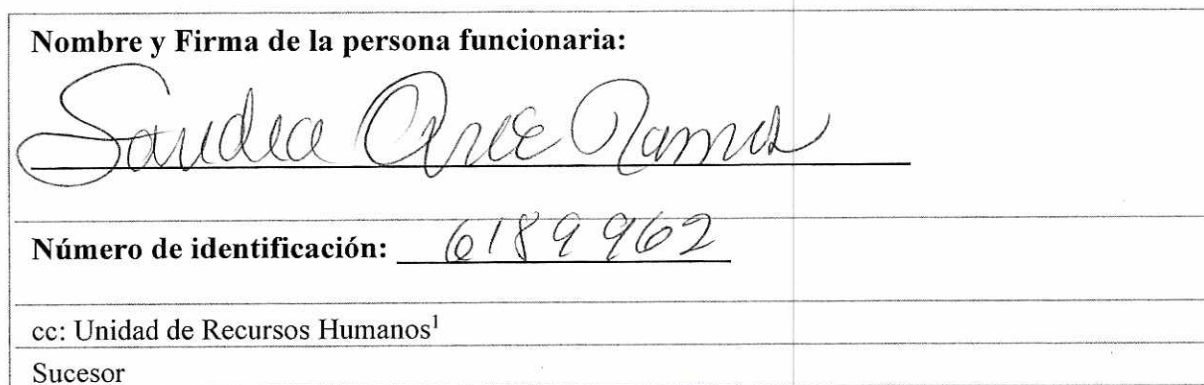 Nombre y Firma de la persona funcionaria:
Sandra Arce Ramos
Número de identificación: 6189962
cc: Unidad de Recursos Humanos¹
Sucesor